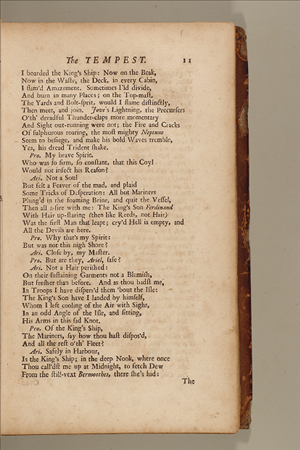 The TEMPEST. 11
I boarded the King's Ship: Now on the Beak,
Now in the Waste, the Deck, in every Cabin,
I flam'd Amazement. Sometimes I'd divide,
And burn in many Places; on the Top-mast,
The Yards and Bolt-sprit, would I flame distinctly,
Then meet, and join. Jove's Lightning, the Precursers
O'th' dreadful Thunder-claps more momentary
And Sight out-running were not; the Fire and Cracks
Of sulphurous roaring, the most mighty Neptune
Seem to besiege, and make his bold Waves tremble,
Yea, his dread Trident shake.
Pro. My brave Spirit,
Who was so firm, so constant, that this Coyl
Would not infect his Reason?
Ari. Not a Soul
But felt a Feaver of the mad, and plaid
Some Tricks of Desperation: All but Mariners
Plung'd in the foaming Brine, and quit the Vessel,
Then all a-fire with me: The King's Son Ferdinand
With Hair up-staring (then like Reeds, not Hair)
Was the first Man that leapt; cry'd Hell is empty, and
All the Devils are here.
Pro. Why that's my Spirit:
But was not this nigh Shore?
Ari. Close by, my Master.
Pro. But are they, Ariel, safe?
Ari. Not a Hair perished:
On their sustaining Garments not a Blemish,
But fresher than before. And as thou badst me,
In Troops I have dispers'd them 'bout the Isle:
The King's Son have I landed by himself,
Whom I left cooling of the Air with Sighs,
In an odd Angle of the Isle, and sitting,
His Arms in this sad Knot.
Pro. Of the King's Ship,
The Mariners, say how thou hast dispos'd,
And all the rest o'th' Fleet?
Ari. Safely in Harbour,
Is the King's Ship; in the deep Nook, where once
Thou call'dst me up at Midnight, to fetch Dew
From the still-vext Bermoothes, there she's hid:
The